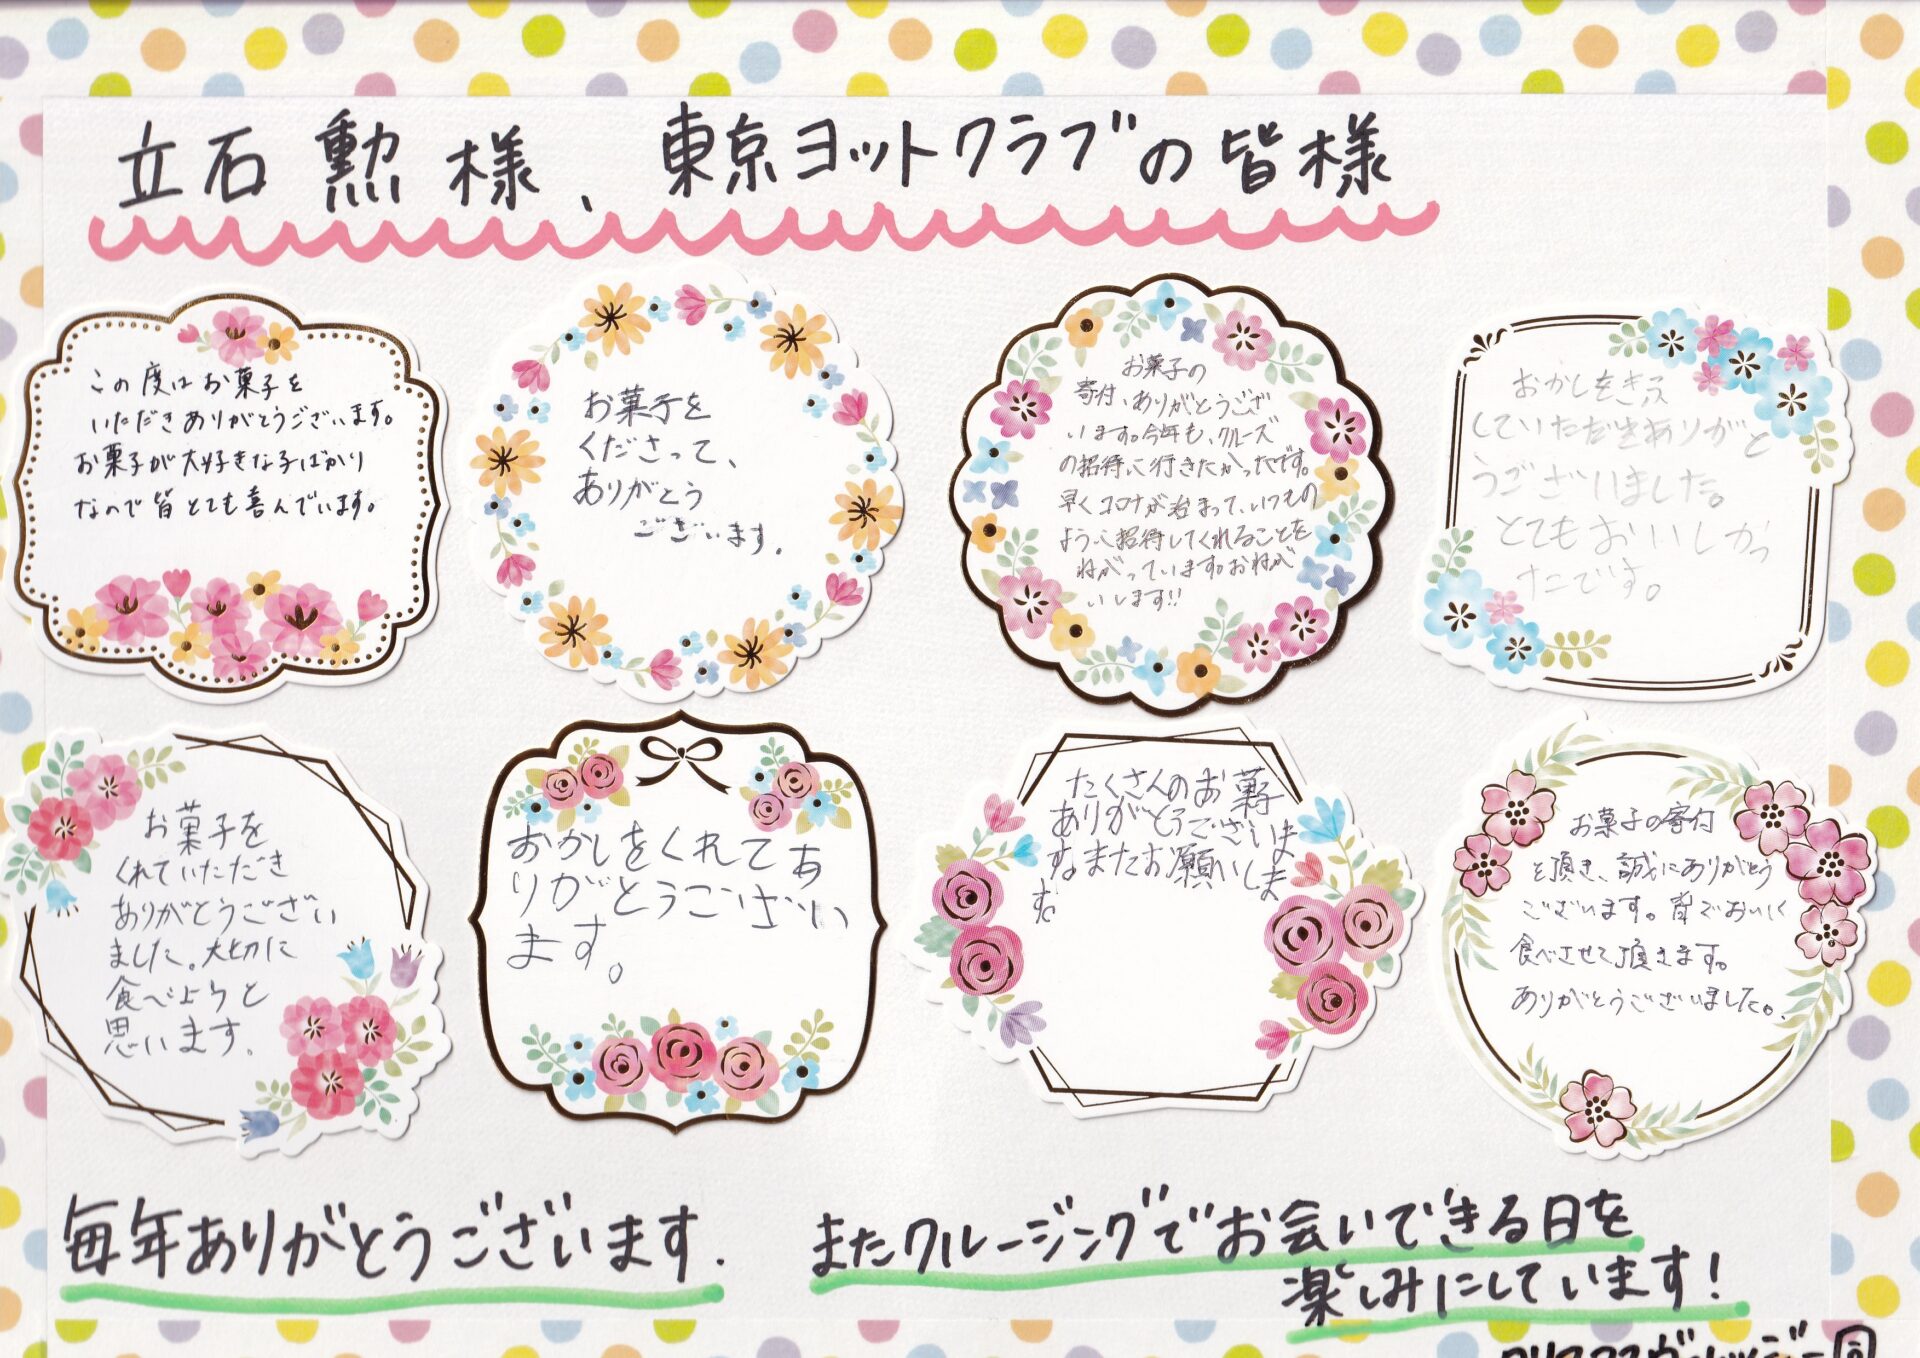 立石 勲 様、東京ヨットクラブの皆様
この度はお菓子を
いただきありがとうございます。
お菓子が大好きな子ばかり
なので皆とても喜んでいます。
お菓子を
くださって、
ありがとう
ございます。
お菓子の
寄付、ありがとうござ
います。今年も、クルーズ
の招待に行きたかったです。
早くコロナが治まって、いつもの
ように招待してくれることを
ねがっています。おねが
いします!!
おかしをきふ
していただきありがと
うございました。
とてもおいしかっ
たです。
お菓子を
くれていただき
ありがとうござい
ました。大切に
食べようと
思います。
おかしをくれてあ
りがとうござい
ます。
たくさんのお菓子
ありがとうございま
すまたお願いしま
す
お菓子の寄付
を頂き、誠にありがとう
ございます。皆でおいしく
食べさせて頂きます。
ありがとうございました。
毎年ありがとうございます.
またクルージングでお会いできる日を
楽しみにしています!